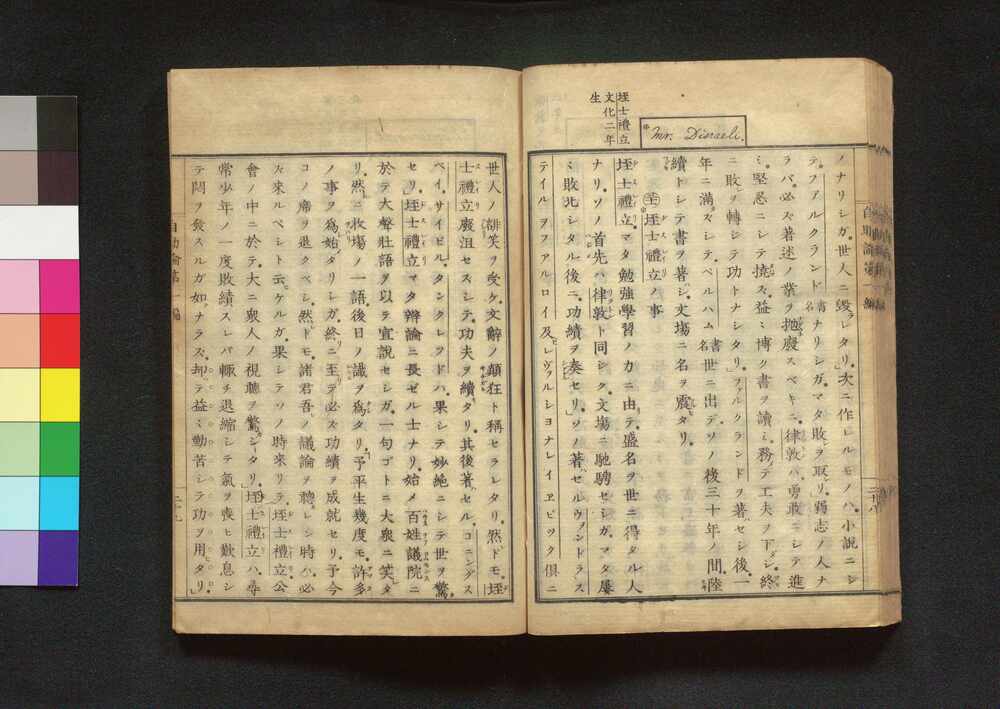 Mr. Disraeli.
垤士禮立
文化二年
生
ノナリシガ、世人ニ毀ラレタリ、次ニ作レルモノハ、小説ニシ
テ、フアルクランド書名ナリシガ、マタ敗ヲ取レリ、弱志ノ人ナ
ラバ、必ズ著述ノ業ヲ抛廢スベキニ、律敦ハ勇敢ニシテ進
ミ、堅忍ニシテ撓ズ、益ミ博ク書ヲ讀ミ、務テ工夫ノ下ダシ、終
ニ敗ヲ轉シテ功トナシタリ、ファルクランドヲ著セシ後一
年ニ滿ズシテ、ペルハム書名世ニ出デ、ソノ後三十年ノ間、陸
續トシテ書ヲ著ハシ、文場ニ名ヲ震タリ、
垤士禮立ノ事
垤士禮立マタ勉強學習ノ力ニ由テ、盛名ヲ世ニ得タル人
ナリ、ソノ首先ハ律敦ト同シク、文場ニ馳騁セシガ、マタ屢
ミ敗北シタル後ニ、功績ヲ奏セリ、ソノ著セルヴヮンドラス
テイル ヲフアルロイ 及ヒレヴァルショナレイ ヱピック 倶ニ
世人ノ誹笑ヲ受ケ、文辭ノ顛狂ト稱セラレタリ、然ドモ、垤
士禮立廢沮セスシテ、功夫ヲ續ダリ、其後著セル、コニングス
ベイ、サイビル、タンクレッドハ、果シテ妙絶ニシテ世ヲ驚
セリ、垤士禮立マタ辯論ニ長ゼル士ナリ、始メ百姓議院ニ
於テ、大聲壯語ヲ以テ宣説セシガ、一句ゴトニ大衆ニ笑レタ
リ、然ニ、牧場ノ一語、後日ノ讖ヲ爲タリ、予平生幾度モ、許多
ノ事ヲ爲始タリシガ、終ニ至テ必ス功績ヲ成就セリ、予今
コノ席ヲ退クベシ、然ドモ諸君、吾ノ議論ヲ聽レシ時ハ、必
ス來ルベシト云ケルガ、果シテソノ時來リテ、垤士禮立公
會ノ中ニ於テ、大ニ衆人ノ視聽ヲ驚シタリ、垤士禮立ハ、尋
常少年ノ一度敗績スレバ輙チ退縮シテ氣ヲ喪ヒ歎息シ
テ悶ヲ發スルガ如ナラズ、却テ益ミ勤苦シテ功ヲ用タリ、
自助論第一編
二十九
自助論第一編
二十八